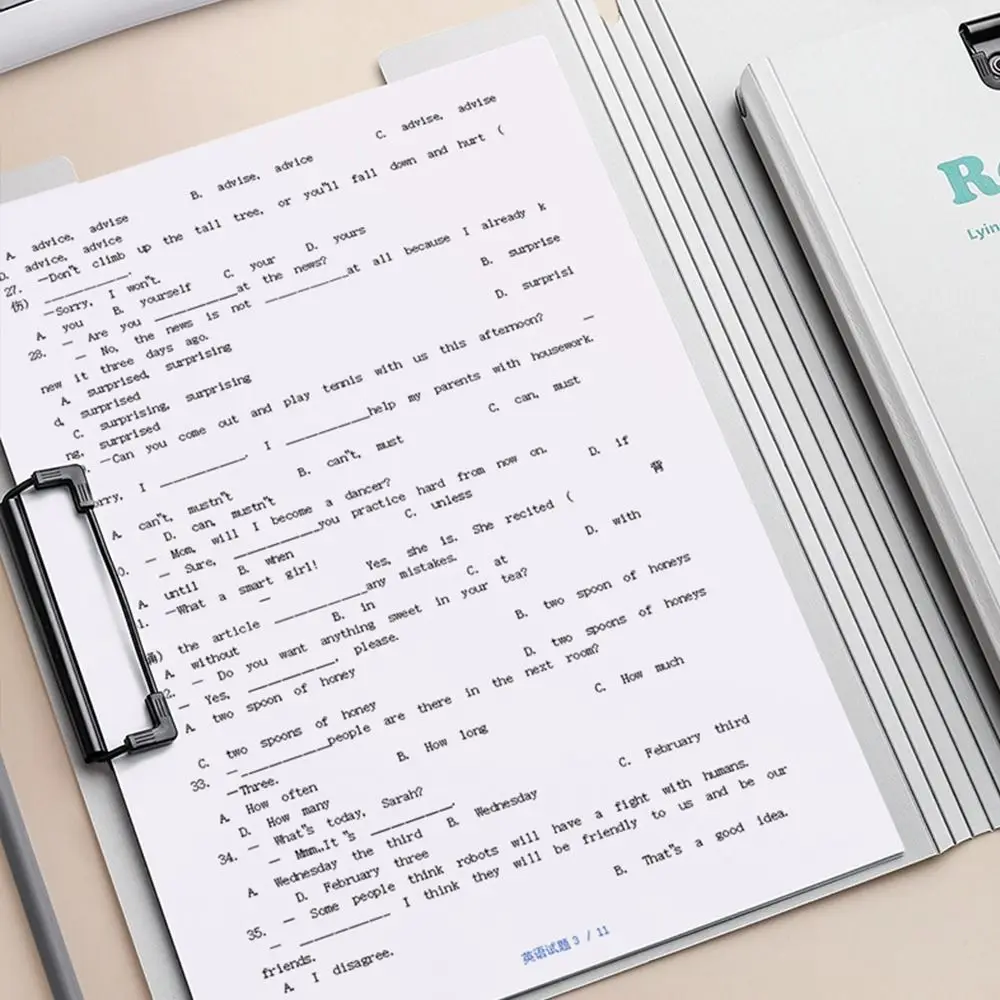 A. advice, advise B. advise, advice C. advise, advise
D. advice, advice
27. —Don't climb up the tall tree, or you'll fall down and hurt (
伤) ____________.
—Sorry, I won't.
A. you B. yourself C. your D. yours
28. — Are you ____________at the news?
— No, the news is not ____________at all because I already k
new it three days ago.
A. surprised, surprising B. surprise
d, surprised
C. surprising, surprising D. surprisi
ng, surprised
—Can you come out and play tennis with us this afternoon? —
orry, I ____________. I ____________help my parents with housework.
A. can't, mustn't B. can't, must C. can, must
D. can, mustn't
0. — Mom, will I become a dancer?
— Sure, ____________you practice hard from now on.
A. until B. when C. unless D. if
1. —What a smart girl!
— Yes, she is. She recited ( 背
诵) the article ____________any mistakes.
A. without B. in C. at D. with
2. — Do you want anything sweet in your tea?
— Yes, ____________, please.
A. two spoon of honey B. two spoon of honeys
C. two spoons of honey D. two spoons of honeys
33. —____________people are there in the next room?
—Three.
A. How often B. How long C. How much
D. How many
34. — What's today, Sarah?
— Mmm…It's ____________.
A. Wednesday the third B. Wednesday C. February third
D. February three
35. — Some people think robots will have a fight with humans.
— ____________ I think they will be friendly to us and be our
friends.
A. I disagree. B. That's a good idea.
英语试题 3 / 11